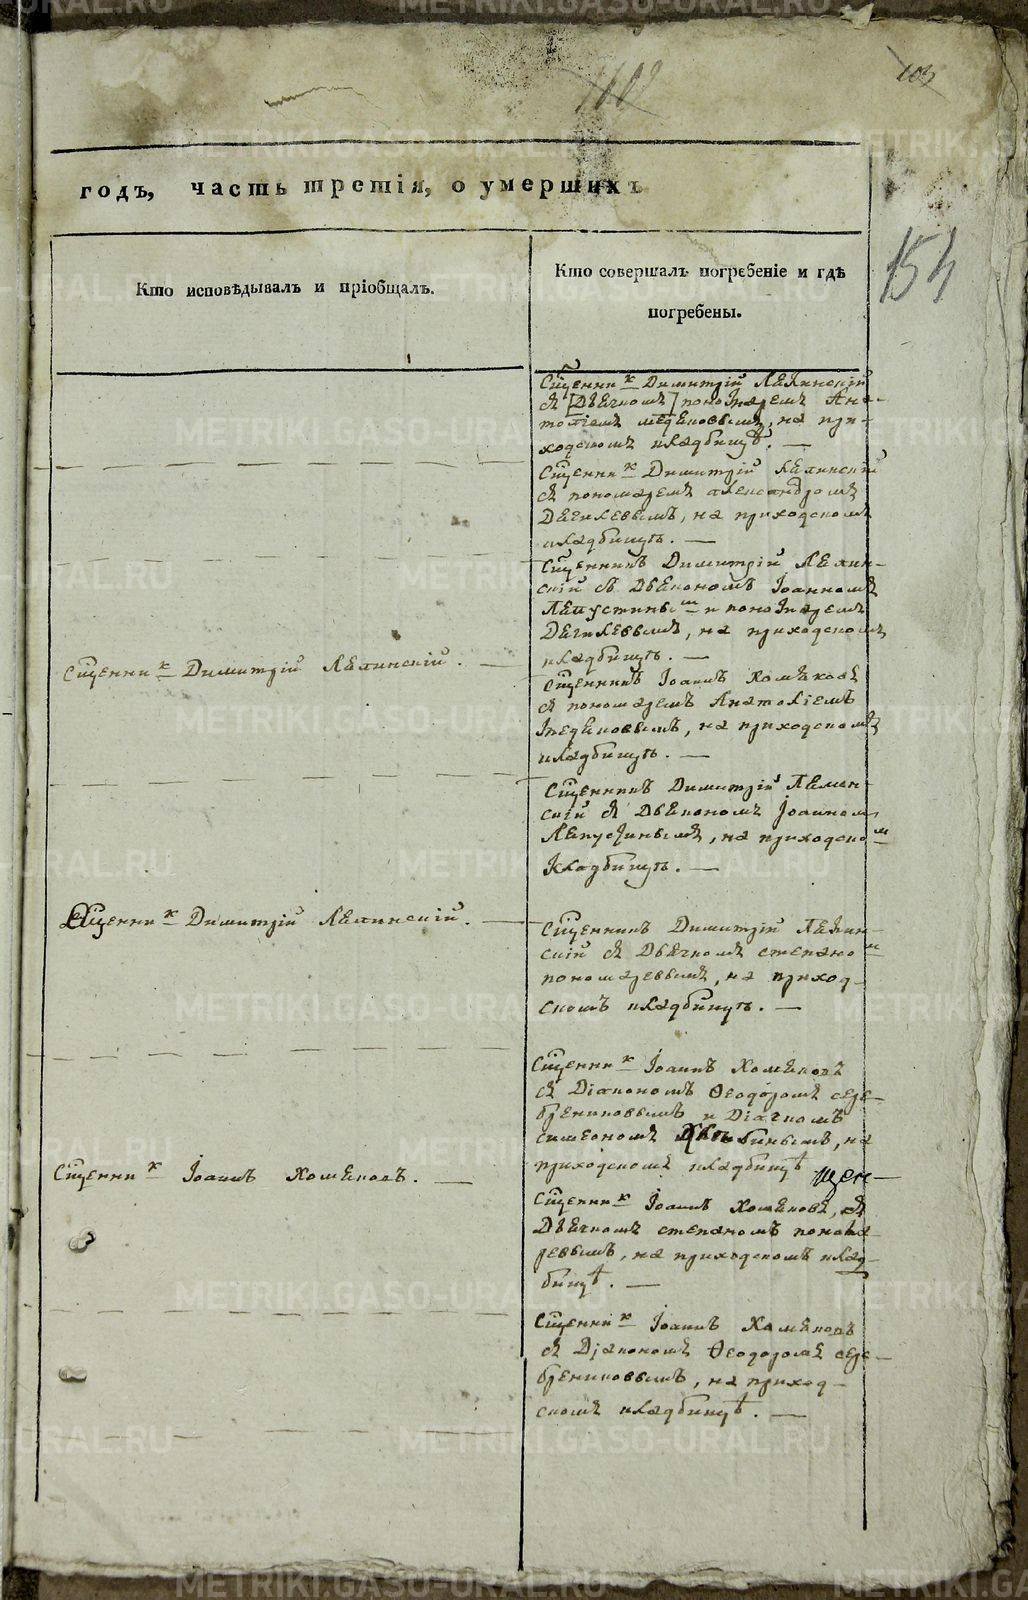 103
154
годъ, часть третія, о умершихъ
Кто исповѣдывалъ и пріобщалъ.
Кто совершалъ погребеніе и гдѣ
погребены.
Сщенникъ Димитрій Ляпинскій
съ [Дьячкомъ] пономаремъ Ана-
толіемъ на при-
ходскомъ кладбищѣ. —
Сщенникъ Димитрій Ляпинскій
съ пономаремъ Александромъ
Дягилевымъ, на приходскомъ
кладбищѣ. —
Сщенникъ Димитрій Ляпин-
скій съ Дьякономъ Іоанномъ
Лапустинымъ и пономаремъ
Дягилевымъ, на приходскомъ
кладбищѣ. —
Сщенникъ Димитрій Ляпинскій. —
Сщенникъ Іоаннъ Хомяковъ
съ пономаремъ Анатоліемъ
на приходскомъ
кладбищѣ. —
Сщенникъ Димитрій Ляпин-
скій съ Дьякономъ Іоанномъ
Лапустинымъ, на приходском
кладбищѣ. —
Сщенникъ Димитрій Ляпинскій. —
Сщенникъ Димитрій Ляпин-
скій съ Дьячкомъ Степаном
пономаревымъ, на приход-
скомъ кладбищѣ. —
Сщенникъ Іоаннъ Хомяковъ
съ Діакономъ Ѳеодоромъ сере-
брениковымъ и Діячкомъ
симеономъ на
приходскомъ кладбищѣ
Сщенникъ Іоаннъ Хомяковъ. —
Сщенникъ Іоаннъ Хомяковъ, съ
Дьячкомъ степаномъ понома-
ревымъ, на приходскомъ клад-
бищѣ. —
Сщенникъ Іоаннъ Хомяковъ
съ Діакономъ Ѳеодоромъ сере-
брениковымъ, на приход-
скомъ кладбищѣ. —